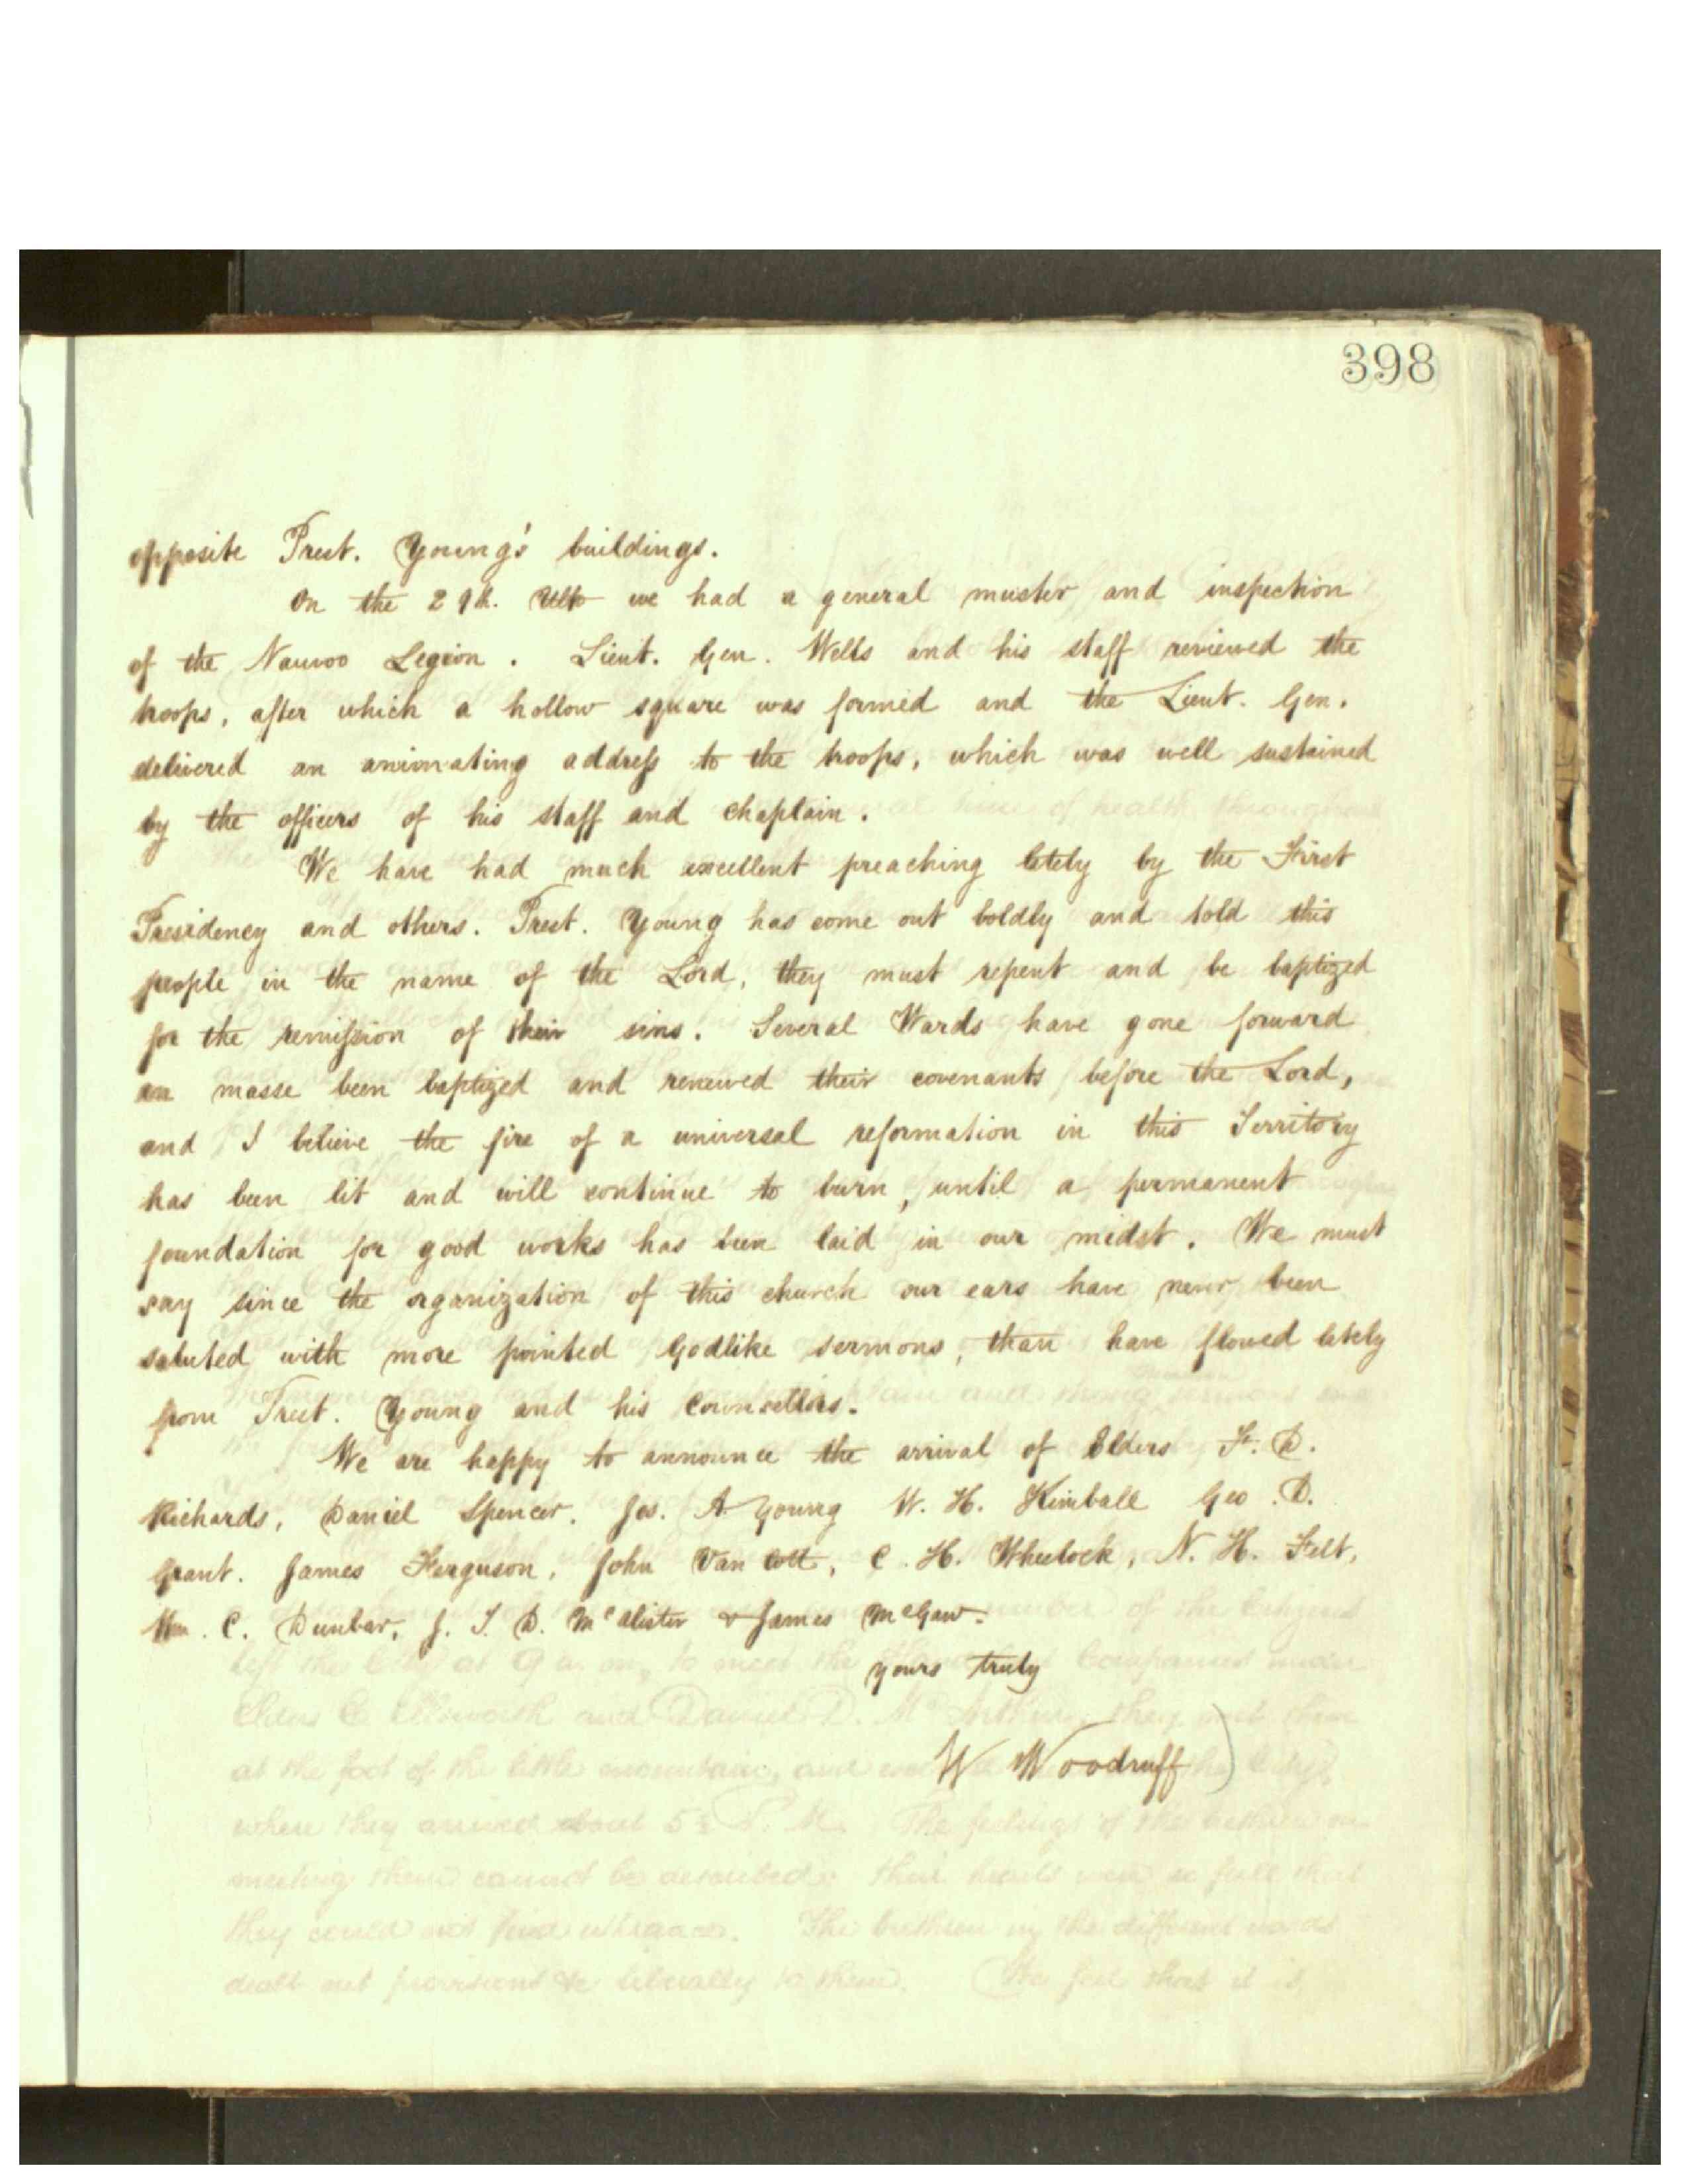 398
opposite Prest. Young's buildings.
On the 29th. Ulto we had a general muster and inspection
of the Nauvoo Legion. Lieut. Gen. Wells and his staff reviewed the
troops, after which a hollow square was formed and the Lieut. Gen.
delivered an animating address to the troops, which was well sustained
by the officers of his staff and chaplain.
We have had much excellent preaching lately by the First
Presidency and others. Prest. Young has come out boldly and told this
people in the name of the Lord, they must repent and be baptized
for the remission of their sins. Several Wards have gone forward
en masse been baptized and renewed their covenants before the Lord,
and I believe the fire of a universal reformation in this Territory
has been lit and will continue to burn, until a permanent
foundation for good works has been laid in our midst. We must
say since the organization of this church our ears have never been
saluted with more pointed Godlike sermons, than have flowed lately
from Prest. Young and his Councellors.
We are happy to announce the arrival of Elders F. D.
Richards, Daniel Spencer. Jos. A. Young W. H. Kimball Geo. D.
Grant. James Ferguson, John Van Cott, C. H. Wheelock, N. H. Felt,
Wm. C. Dunbar, J. T. D. McAlister & James McGaw.
yours truly
W Woodruff)